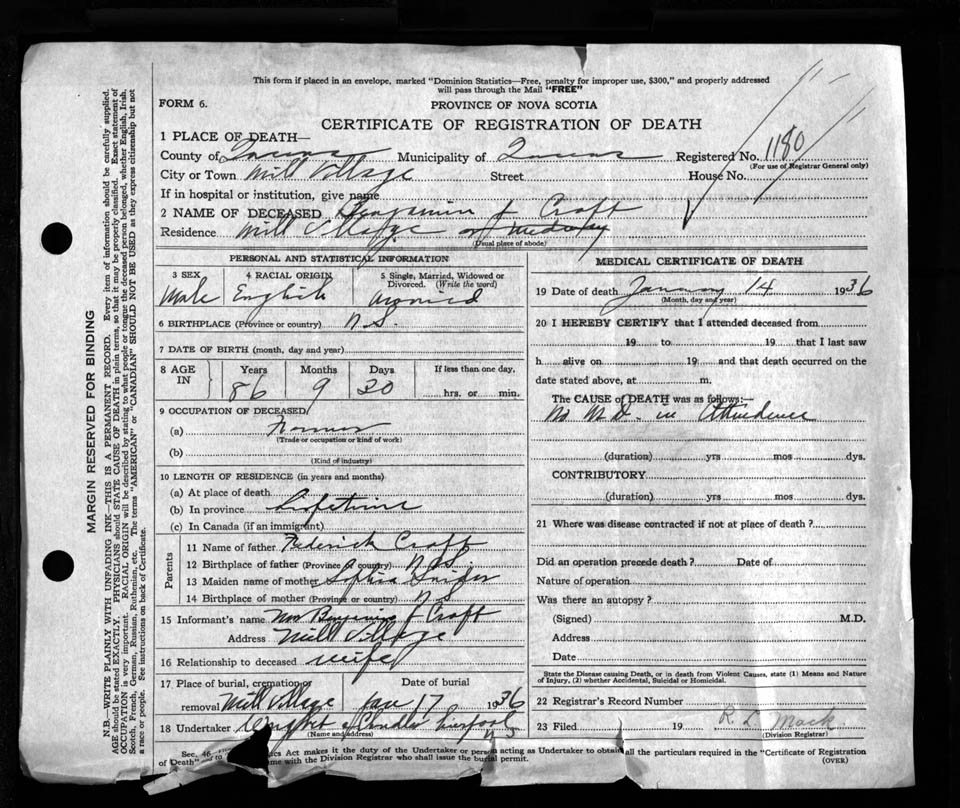 This form if placed in an envelope, marked "Dominion Statistics—Free, penalty for improper use, $300," and properly addressed
will pass through the Mail "FREE"
FORM 6.
PROVINCE OF NOVA SCOTIA
CERTIFICATE OF REGISTRATION OF DEATH
1 PLACE OF DEATH—
County of Queens Municipality of Queens Registered No. 1180
(For use of Registrar General only)
City or Town Mill Village Street House No.
If in hospital or institution, give name
2 NAME OF DECEASED Benjamin J Croft
Residence Mill Village
(Usual place of abode)
PERSONAL AND STATISTICAL INFORMATION
3 SEX 4 RACIAL ORIGIN 5 Single, Married, Widowed or Divorced. (Write the word)
Male English Married
6 BIRTHPLACE (Province or country) N S.
7 DATE OF BIRTH (month, day and year)
8 AGE IN Years Months Days If less than one day,
86 9 30 hrs. or min.
9 OCCUPATION OF DECEASED
(a) Farmer
(Trade or occupation or kind of work)
(b)
(Kind of industry)
10 LENGTH OF RESIDENCE (in years and months)
(a) At place of death
(b) In province Lifetime
(c) In Canada (if an immigrant)
Parents
11 Name of father Federick Croft
12 Birthplace of father (Province or country) N S
13 Maiden name of mother Sophia Snider
14 Birthplace of mother (Province or country) N S
15 Informant's name Mrs Benjamin J Croft
Address Mill Village
16 Relationship to deceased wife
17 Place of burial, cremation or removal Mill Village
Date of burial Jan 17 1936
18 Undertaker Liverpool
N S
(Name and address)
MEDICAL CERTIFICATE OF DEATH
19 Date of death January 14 1936
(Month, day and year)
20 I HEREBY CERTIFY that I attended deceased from
19 to 19 that I last saw
h alive on 19 and that death occurred on the
date stated above, at m.
The CAUSE of DEATH was as follows:—
No M.D. in Attendence
(duration) yrs mos. dys.
CONTRIBUTORY
(duration) yrs mos. dys.
21 Where was disease contracted if not at place of death ?
Did an operation precede death ? Date of
Nature of operation
Was there an autopsy ?
(Signed) M.D.
Address
Date
State the Disease causing Death, or in death from Violent Causes, state (1) Means and Nature
of Injury, (2) whether Accidental, Suicidal or Homicidal.
22 Registrar's Record Number
23 Filed 19 R. L. Mack
(Division Registrar)
Sec. 46, cs Act makes it the duty of the Undertaker or person acting as Undertaker to obtain all the particulars required in the "Certificate of Registration
of Death" and to the Division Registrar who shall issue the burial permit. (OVER)
MARGIN RESERVED FOR BINDING
N.B.—WRITE PLAINLY WITH UNFADING INK—THIS IS A PERMANENT RECORD. Every item of information should be carefully supplied.
AGE should be stated EXACTLY. PHYSICIANS should STATE CAUSE OF DEATH in plain terms, so that it may be properly classified. Exact statement of
OCCUPATION is very important. RACIAL ORIGIN will be described by stating to what people or tongue the deceased person belonged, whether English, Irish,
Scotch, French, German, Russian, Ruthenian, etc. The terms "AMERICAN" or "CANADIAN" SHOULD NOT BE USED as they express citizenship but not
a race or people. See instructions on back of Certificate.